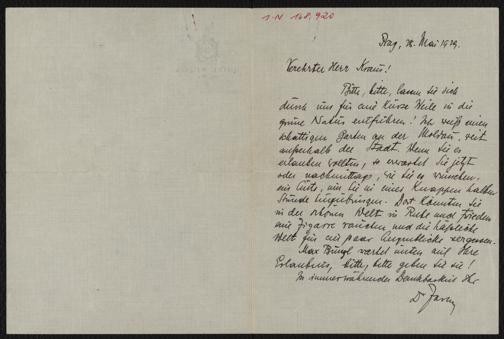 I.N. 168.920
Prag, 28. Mai 1929.
Verehrter Herr Kraus!
Bitte, bitte, lassen Sie sich
durch uns für eine kurze Weile in die
grüne Natur entführen! Ich weiß einen
schattigen Garten an der Moldau, weit
außerhalb der Stadt. Wenn Sie es
erlauben wollten, so erwartet Sie jetzt
oder nachmittags, wie Sie es wünschen,
ein Auto, um Sie in einer knappen halben
Stunde hinzubringen. Dort könnten Sie
in der schönen Welt in Ruhe und Frieden
eine Zigarre rauchen und die häßliche
Welt für ein paar Augenblicke vergessen.
Max wartet unten auf Ihre
Erlaubnis, bitte, bitte geben Sie sie!
In immerwährender Dankbarkeit Ihr
Dr